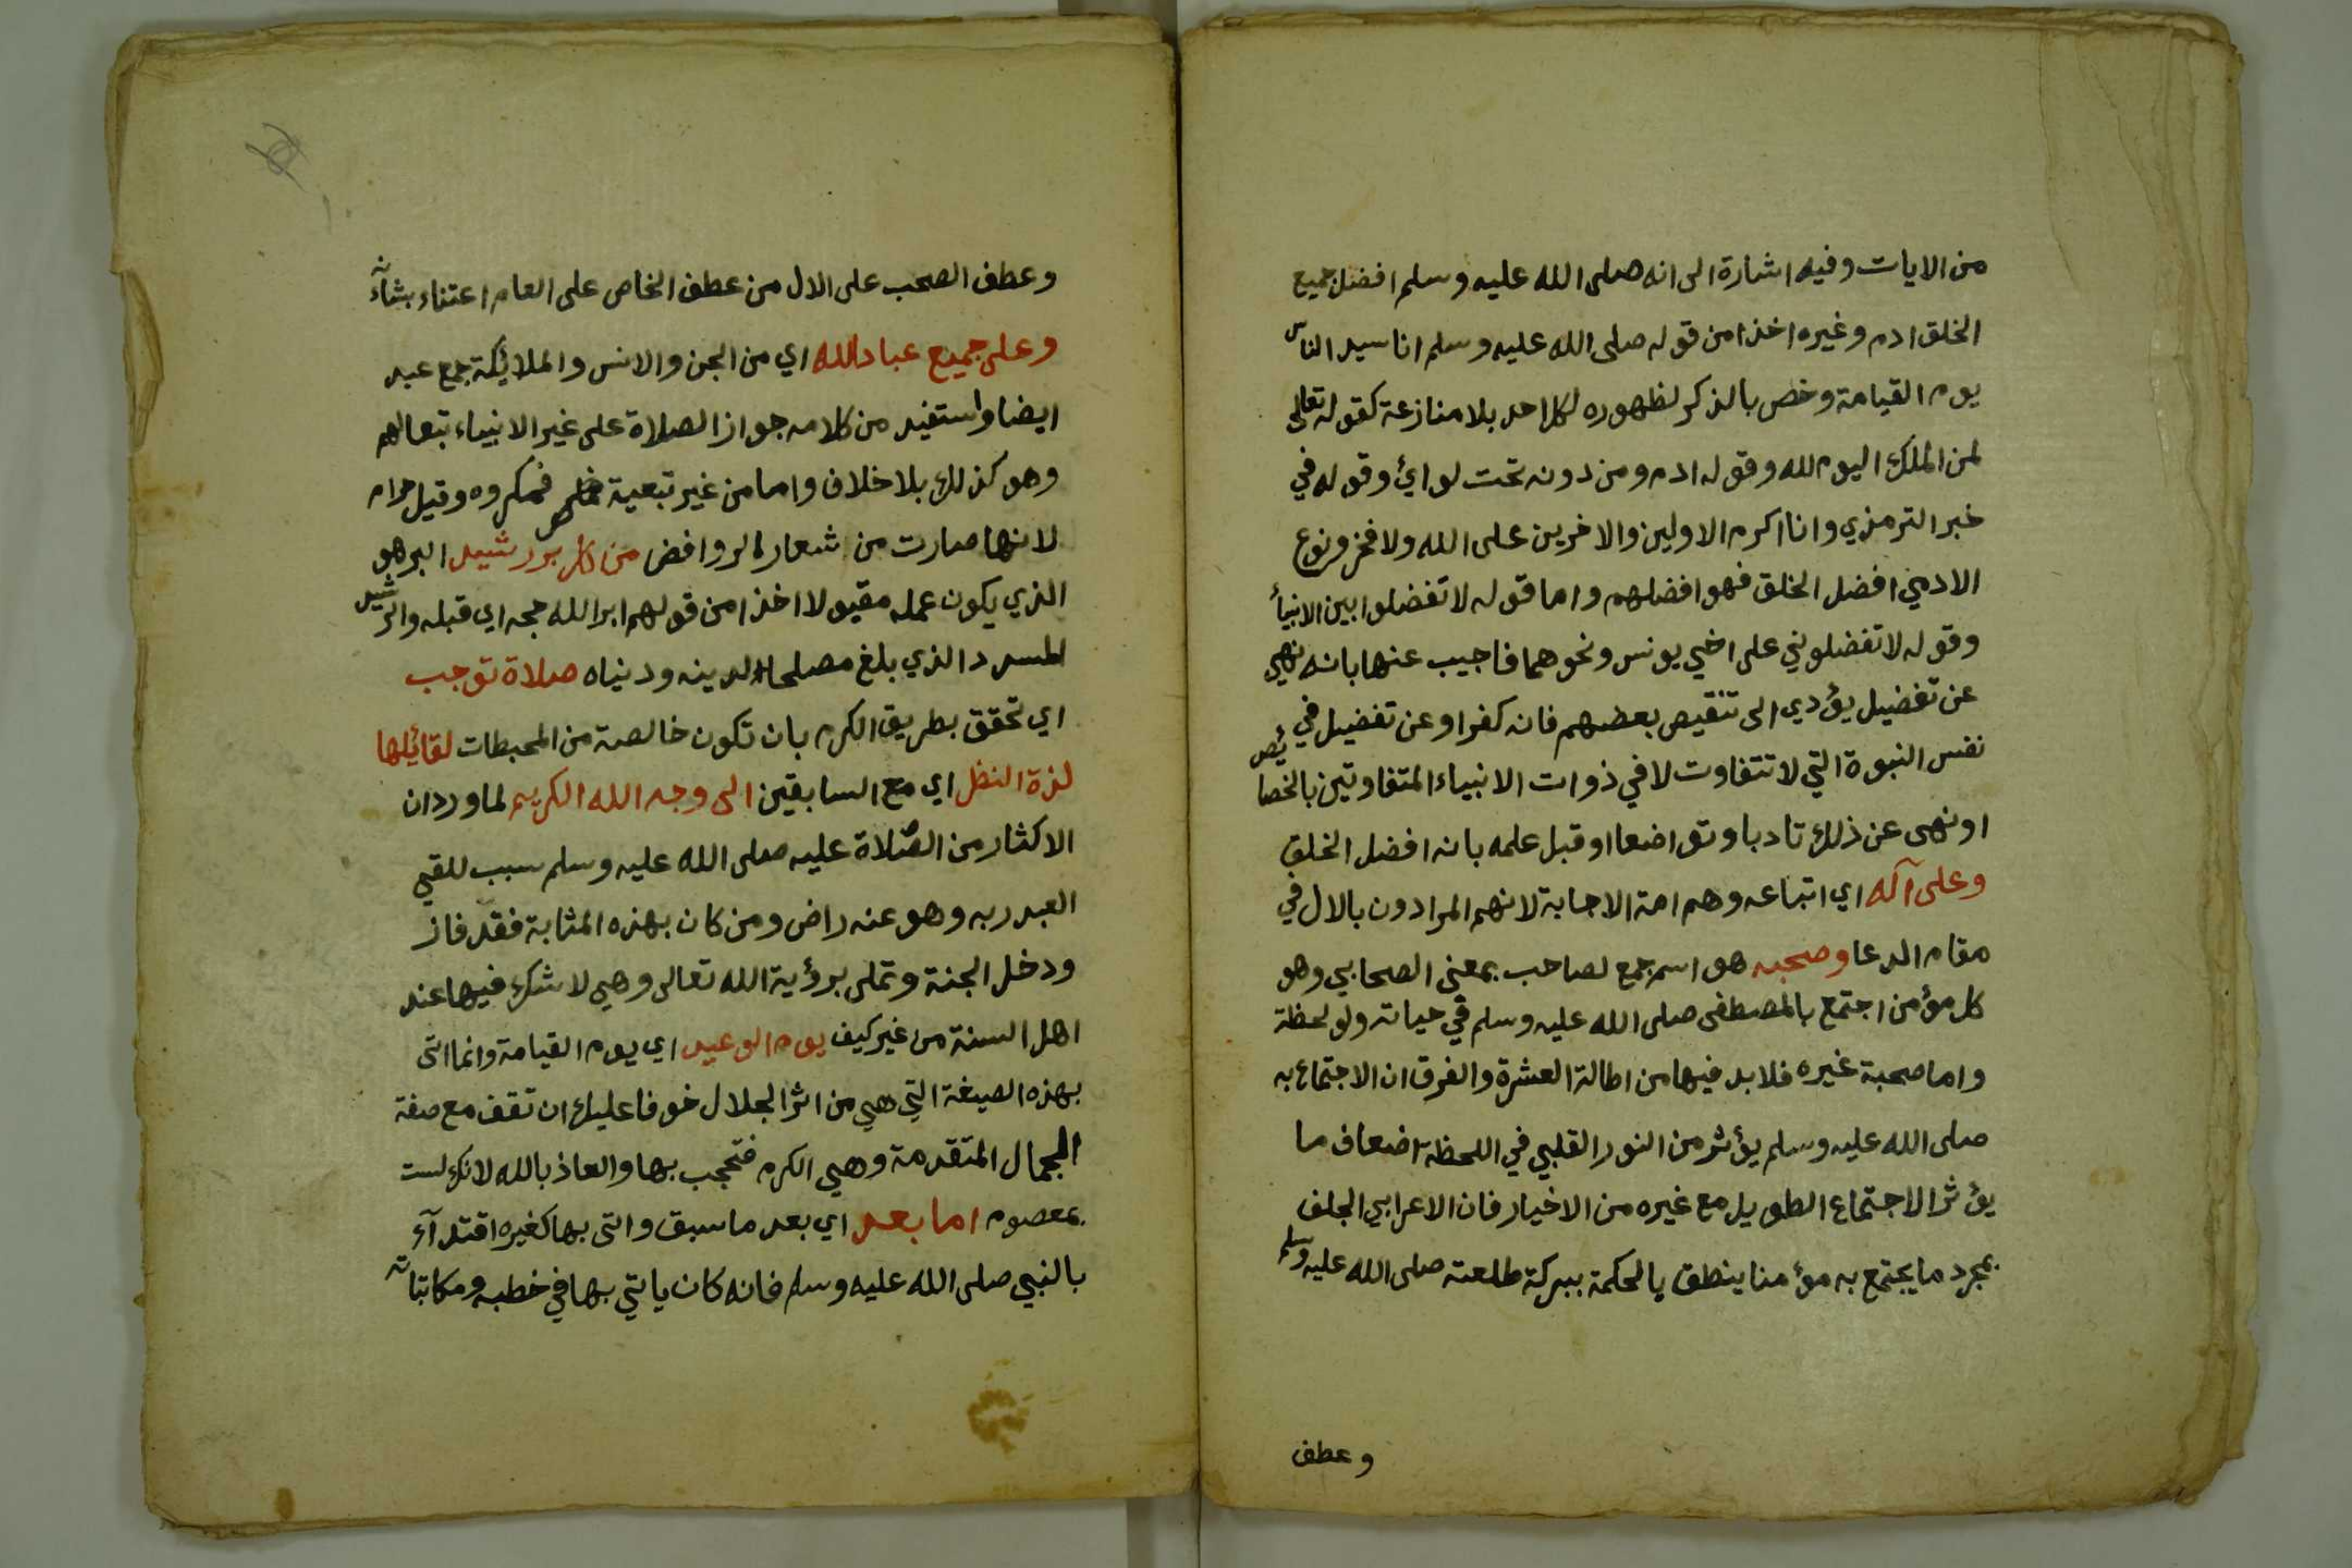 من الايات وفيه اشارة الى انه صلى الله عليه وسلم افضل جميع
الخلق ادم وغيره اخذا من قوله صلى الله عليه وسلم انا سيد الناس
يوم القيامة وخص بالذكر لظهوره لكل احد بلا منازعة كقوله تعالى
لمن الملك اليوم لله وقوله ادم ومن دونه تحت لوائ وقوله في
خبر الترمذي وانا اكرم الاولين والاخرين على الله ولا فخر ونوع
الادمي افضل الخلق فهو افضلهم واما قوله لا تفضلوا بين الانبيأ
وقوله لا تفضلوني على اخي يونس ونحوهما فاجيب عنها بانه نهي
عن تفضيل يؤدي الى تنقيص بعضهم فانه كفر او عن تفضيل في
نفس النبوة التي لا تتفاوت لا في ذوات الانبياء المتفاوتين بالخصائص
او نهى عن ذلك تادبا وتواضعا او قبل علمه بانه افضل الخلق
وعلى آله اي اتباعه وهم امة الاجابة لانهم المرادون بالال في
مقام الدعا وصحبه هو اسم جمع لصاحب بمعنى الصحابي وهو
كل مؤمن اجتمع بالمصطفى صلى الله عليه وسلم في حياته ولو لحظة
واما صحبة غيره فلا بد فيها من اطالة العشرة والفرق ان الاجتماع به
صلى الله عليه وسلم يؤثر من النور القلبي في اللحظة اضعاف ما
يؤثر الاجتماع الطويل مع غيره من الاخيار فان الاعرابي الجلف
بمجرد ما يجتمع به مؤمنا ينطق بالحكمة ببركة طلعته صلى الله عليه وسلم
وعطف
وعطف الصحب على الال من عطف الخاص على العام اعتناء بشأنه
وعلى جميع عباد الله اي من الجن والانس والملائكة جمع عبد
ايضا واستفيد من كلامه جواز الصلاة على غير الانبياء تبعا لهم
وهو كذلك بلا خلاف واما من غير تبعية فمكروه وقيل حرام
لانها صارت من شعار الروافض من كل بر رشيد البر هو
الذي يكون عمله مقبولا اخذا من قولهم ابر الله حجه اي قبله والرشيد
المسدد الذي بلغ مصلحة دينه ودنياه صلاة توجب
اي تحقق بطريق الكرم بان تكون خالصة من المحبطات لقائلها
لذة النظر اي مع السابقين الى وجه الله الكريم لما ورد ان
الاكثار من الصلاة عليه صلى الله عليه وسلم سبب للقي
العبد ربه وهو عنه راض ومن كان بهذه المثابة فقد فاز
ودخل الجنة وتملى برؤية الله تعالى وهي لا شك فيها عند
اهل السنة من غير كيف يوم الوعيد اي يوم القيامة وانما اتى
بهذه الصيغة التي هي من اثر الجلال خوفا عليك ان تقف مع صفة
الجمال المتقدمة وهي الكرم فتحجب بها والعاذ بالله لانك لست
بمعصوم اما بعد اي بعد ما سبق واتى بها كغيره اقتدآء
بالنبي صلى الله عليه وسلم فانه كان ياتي بها في خطبه ومكاتباته